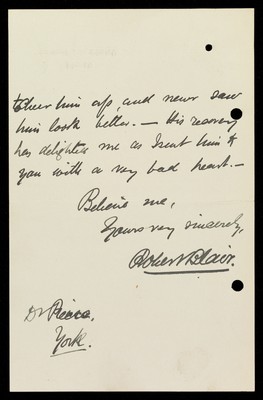 to cheer him up, and never saw
him look better. — His recovery
has delighted me as I sent him to
you with a very bad heart. —
Believe me,
Yours very sincerely,
Robert Blair.
Dr Pierce.
York.